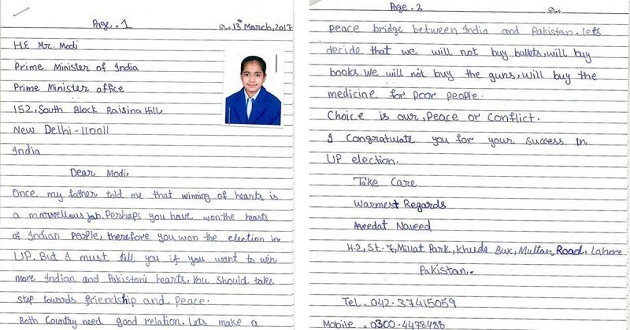 Page. 1
13th March, 2017
HE Mr. Modi
Prime Minister of India
Prime Minister office
152, South Block Raisina Hill
New Delhi - 110011
India
Dear Modi,
Once my father told me that winning of hearts is
a marvellous job. Perhaps you have won the hearts
of Indian People, therefore you won the election in
UP. But I must tell you if you want to win
more Indian and Pakistani hearts, You should take
step towards friendship and Peace.
Both Country need good relation. Lets make a
Page. 2
peace bridge between India and Pakistan. lets
decide that we will not buy bullets, will buy
books. We will not buy the guns, will buy the
medicine for poor people.
Choice is our, Peace or Conflict.
I Congratulate you for your success in
UP election.
Take Care
Warmest Regards
Aqeedat Naveed
H-2, St-7, Millat Park, Khuda Bux, Multan Road, Lahore
Pakistan.
Tel. 042-37415059
Mobile. 0300-4478488